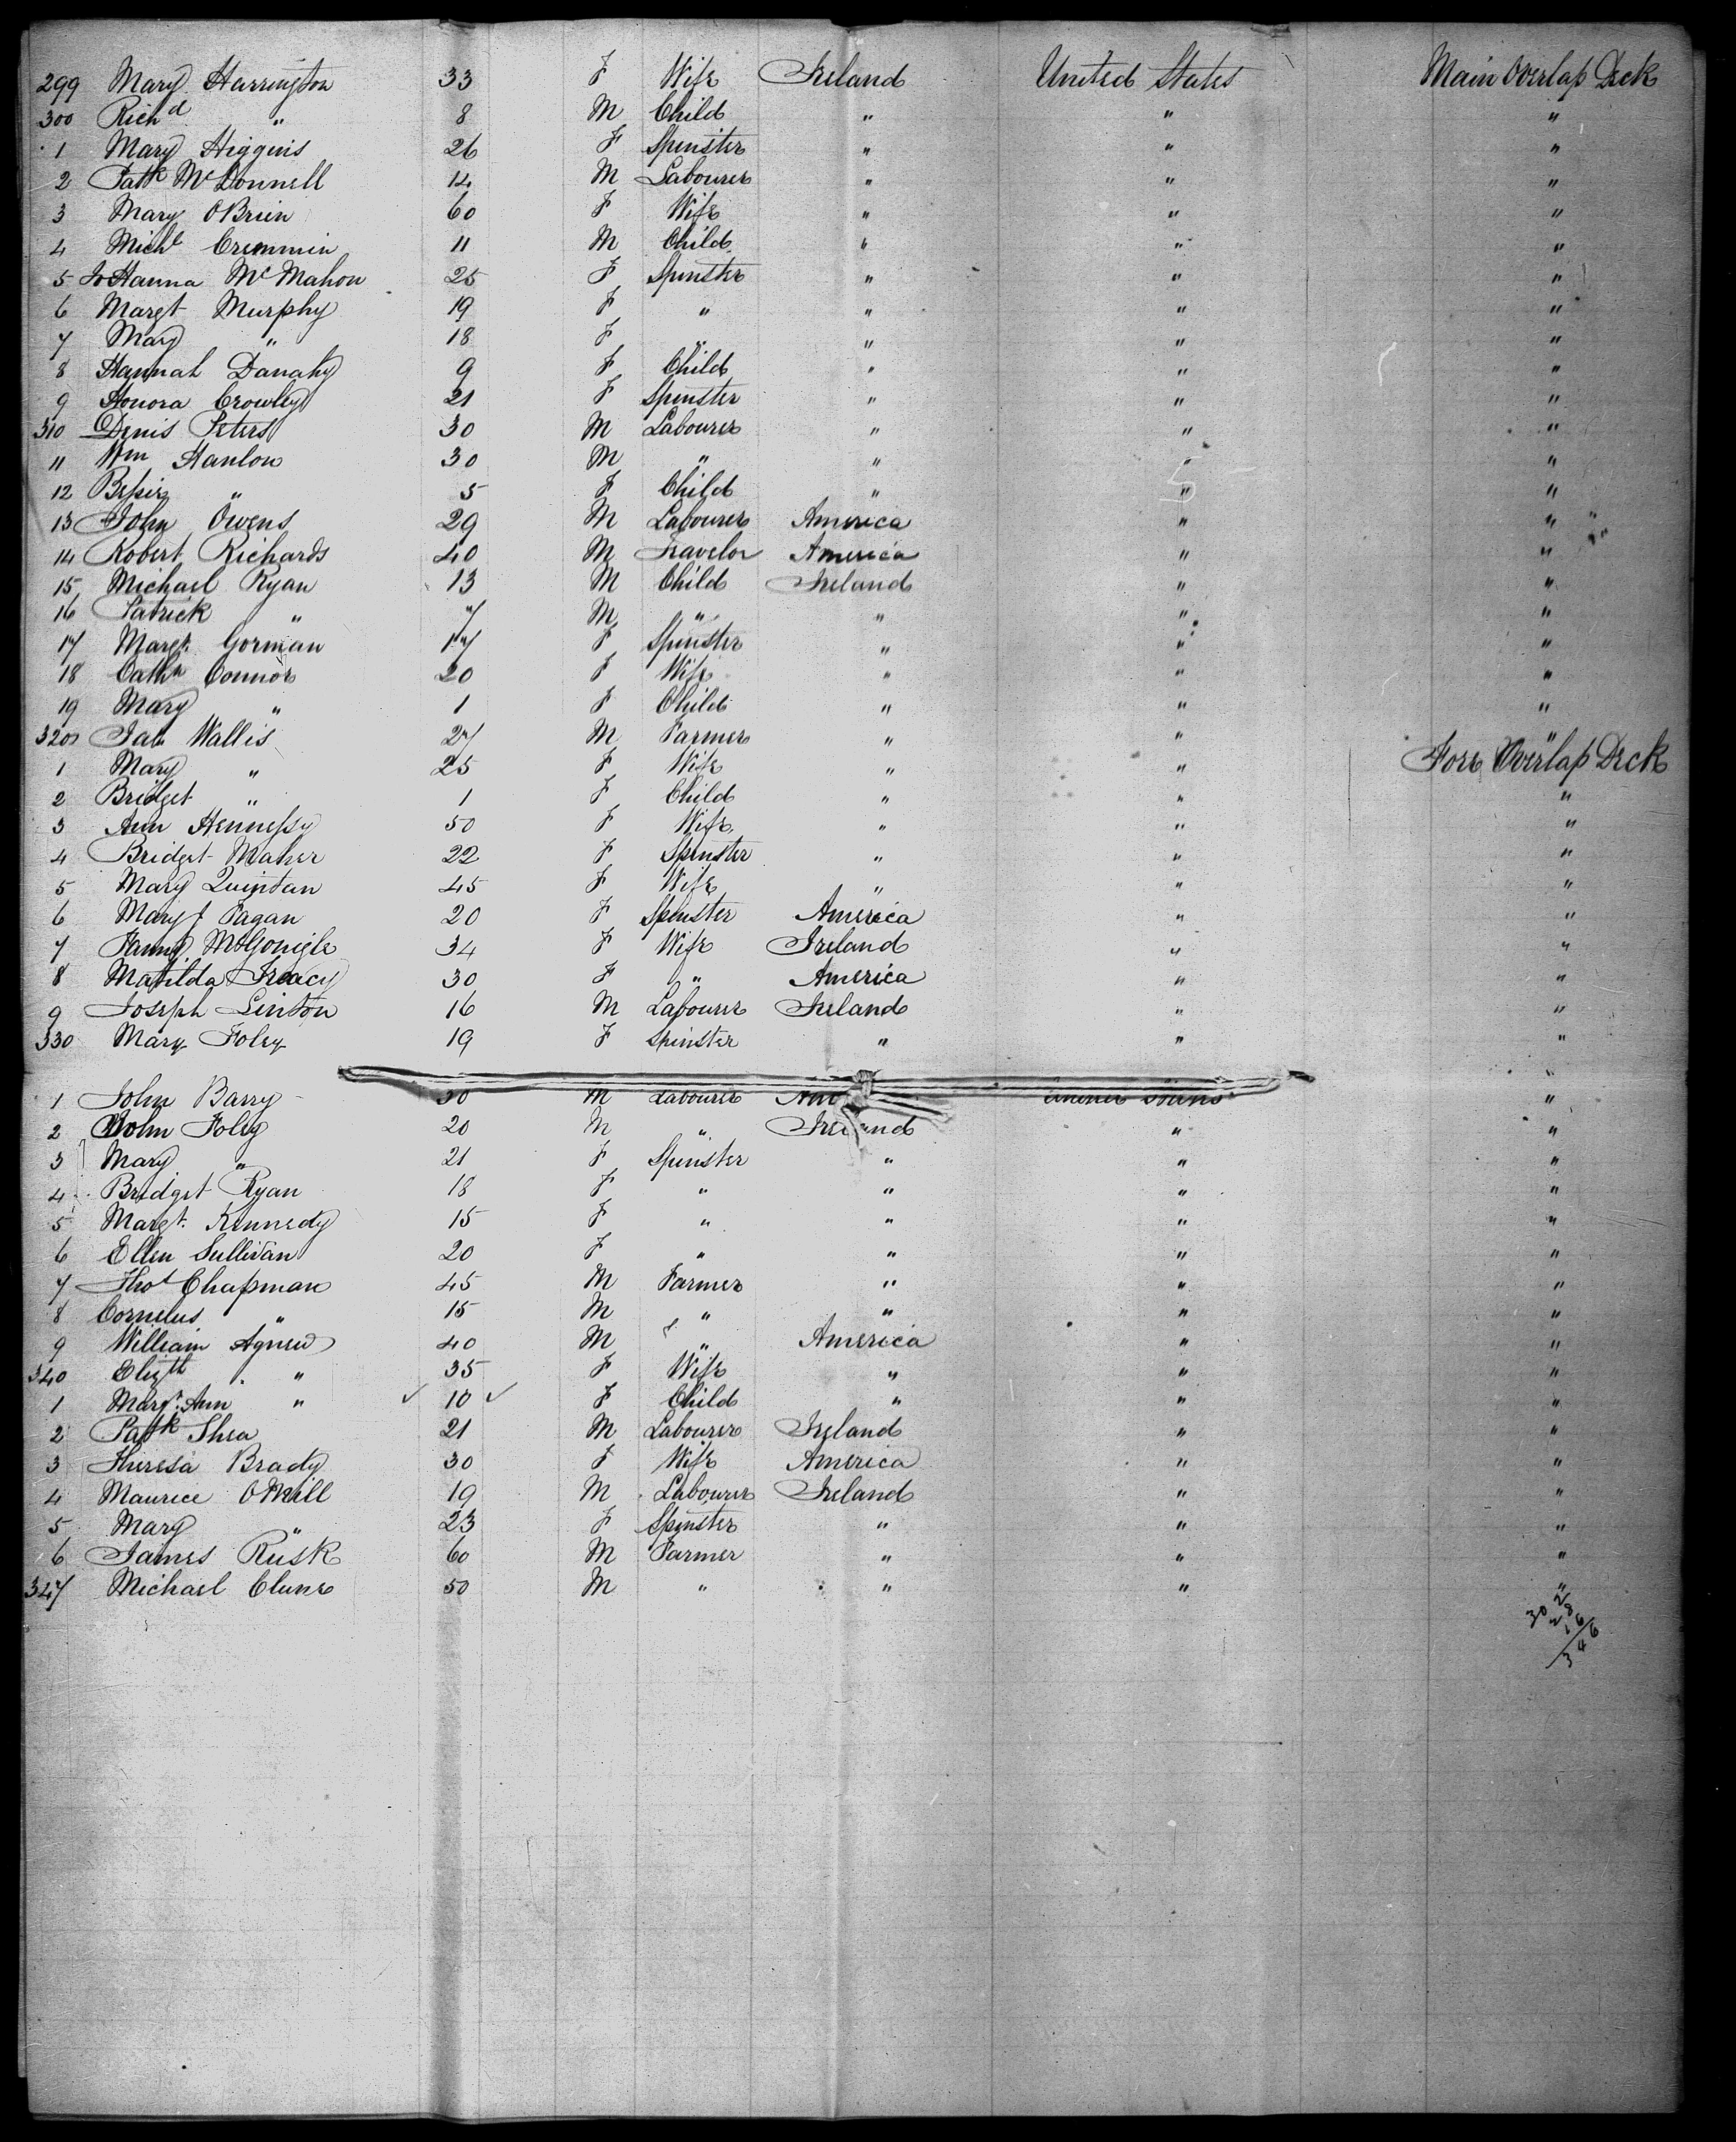 299 Mary Harrington 33 F Wife Ireland United States Main Overlap Deck
300 Richd " 8 M Child " " "
1 Mary Higgins 26 F Spinster " " "
2 Patk McDonnell 14 M Labourer " " "
3 Mary OBrien 60 F Wife " " "
4 Michl Cremmin 11 M Child " " "
5 JoHanna McMahon 25 F Spinster " " "
6 Margt Murphy 19 F " " " "
7 Mary " 18 F " " " "
8 Hannah Danahy 9 F Child " " "
9 Honora Crowley 21 F Spinster " " "
310 Denis Peters 30 M Labourer " " "
11 Wm Hanlon 30 M " " " "
12 Bessie " 5 F Child " " "
13 John Owens 29 M Labourer America " "
14 Robert Richards 40 M Travelor America " "
15 Michael Ryan 13 M Child Ireland " "
16 Patrick " 7 M " " " "
17 Margt Gorman 17 F Spinster " " "
18 Cathn Connor 20 F Wife " " "
19 Mary " 1 F Child " " "
320 Jas Wallis 27 M Farmer " " "
1 Mary " 25 F Wife " " Fore Overlap Deck
2 Bridget " 1 F Child " " "
3 Ann Hennessy 50 F Wife " " "
4 Bridget Maher 22 F Spinster " " "
5 Mary Quintan 45 F Wife " " "
6 Mary J Fagan 20 F Spinster America " "
7 Fanny McGonigle 34 F Wife Ireland " "
8 Matilda Treacy 30 F " America " "
9 Joseph Linton 16 M Labourer Ireland " "
330 Mary Foley 19 F Spinster " " "
1 John Barry 30 M Labourer Am United States "
2 John Foley 20 M " Ireland " "
3 Mary " 21 F Spinster " " "
4 Bridget Ryan 18 F " " " "
5 Margt. Kennedy 15 F " " " "
6 Ellen Sullivan 20 F " " " "
7 Thos Chapman 45 M Farmer " " "
8 Cornelus " 15 M " " " "
9 William Agnew 40 M " America " "
340 Elizth " 35 F Wife " " "
1 Mary Ann " 10 F Child " " "
2 Patk Shea 21 M Labourer Ireland " "
3 Theresa Brady 30 F Wife America " "
4 Maurice ONeill 19 M Labourer Ireland " "
5 Mary " 23 F Spinster " " "
6 James Rusk 60 M Farmer " " "
347 Michael Clune 50 M " " " "
302
28
16
346